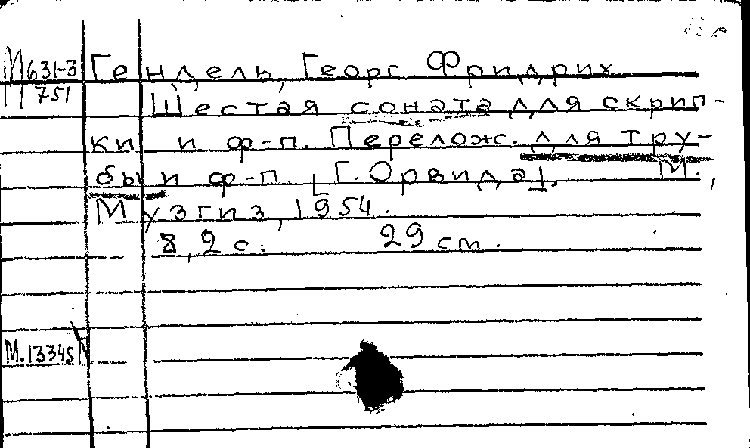 М631-3 Гендель, Георг Фридрих
П 751 Шестая соната для скрип-
ки и ф-п. Перелож. для тру-
бы и ф-п. [Г. Орвида]. М.,
Музгиз, 1954.
8, 2 с. 29 см.
М.13345